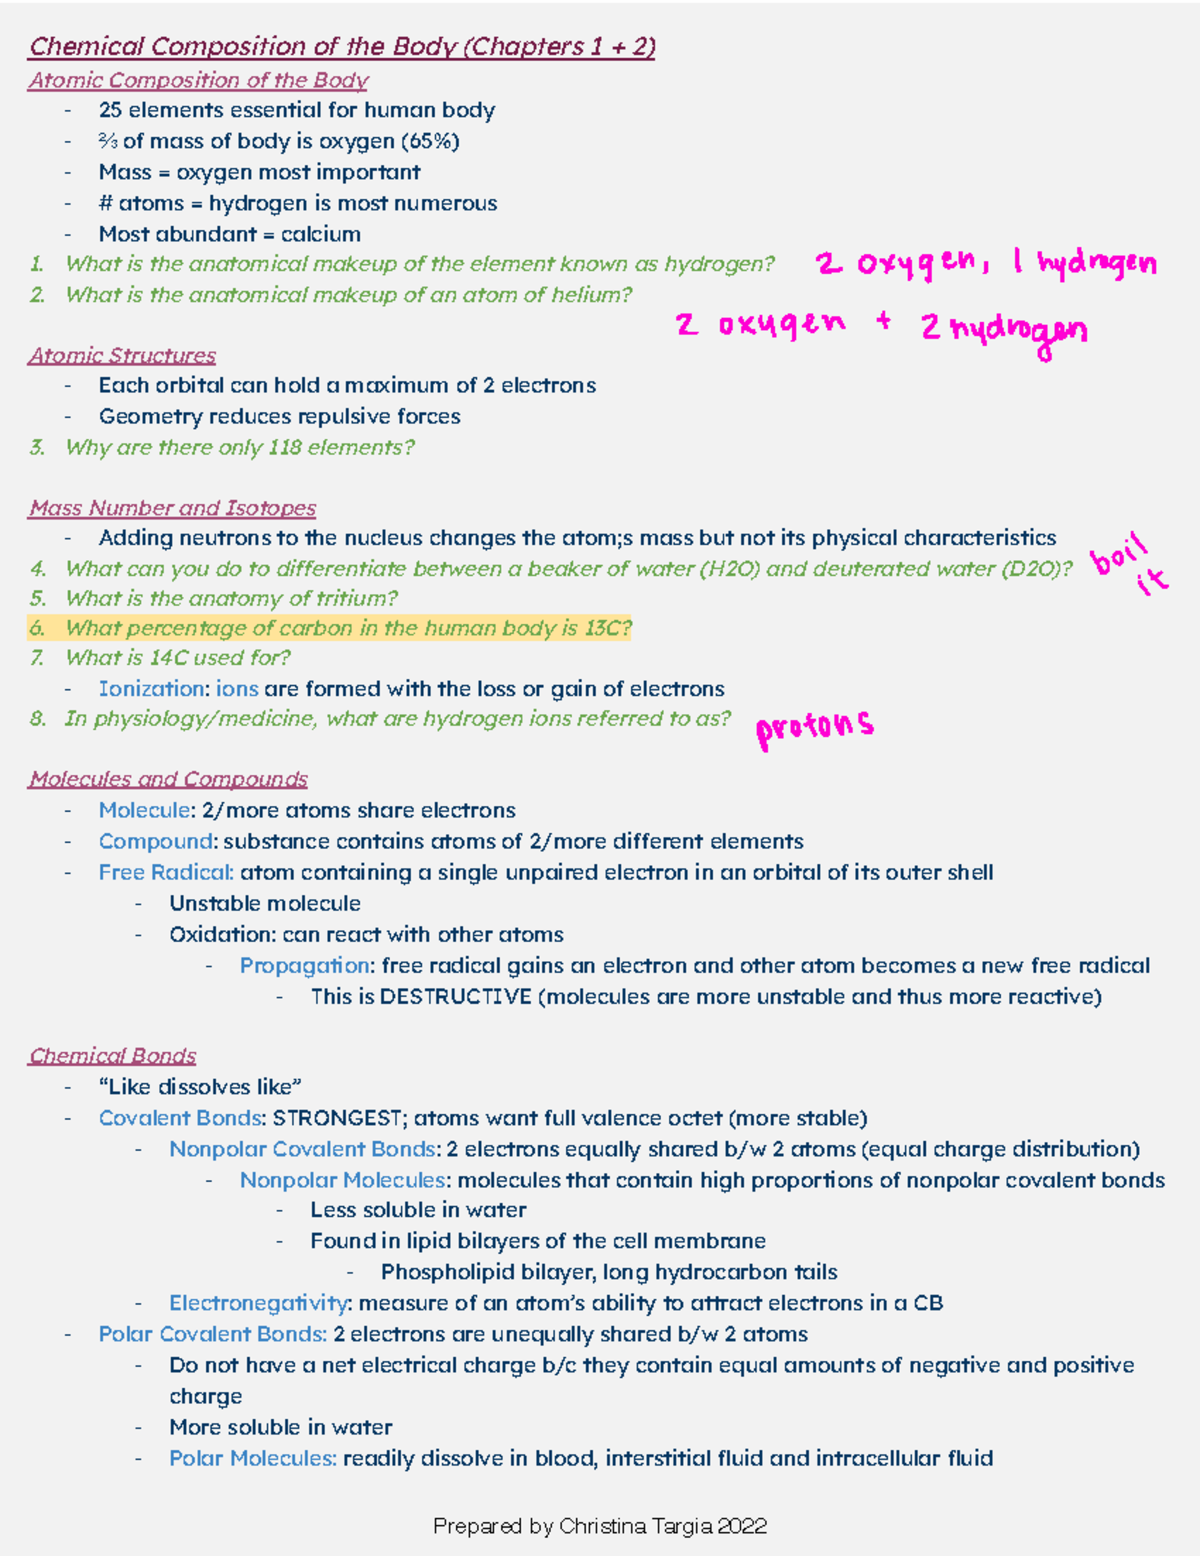 Chemical Composition of the Body (Chapters 1 + 2)
Atomic Composition of the Body
- 25 elements essential for human body
- ⅔ of mass of body is oxygen (65%)
- Mass = oxygen most important
- # atoms = hydrogen is most numerous
- Most abundant = calcium
1. What is the anatomical makeup of the element known as hydrogen? 2 oxygen, 1 hydrogen
2. What is the anatomical makeup of an atom of helium?
2 oxygen + 2 hydrogen
Atomic Structures
- Each orbital can hold a maximum of 2 electrons
- Geometry reduces repulsive forces
3. Why are there only 118 elements?
Mass Number and Isotopes
- Adding neutrons to the nucleus changes the atom;s mass but not its physical characteristics
4. What can you do to differentiate between a beaker of water (H2O) and deuterated water (D2O)? boil
it
5. What is the anatomy of tritium?
6. What percentage of carbon in the human body is 13C?
7. What is 14C used for?
- Ionization: ions are formed with the loss or gain of electrons
8. In physiology/medicine, what are hydrogen ions referred to as? protons
Molecules and Compounds
- Molecule: 2/more atoms share electrons
- Compound: substance contains atoms of 2/more different elements
- Free Radical: atom containing a single unpaired electron in an orbital of its outer shell
- Unstable molecule
- Oxidation: can react with other atoms
- Propagation: free radical gains an electron and other atom becomes a new free radical
- This is DESTRUCTIVE (molecules are more unstable and thus more reactive)
Chemical Bonds
- “Like dissolves like”
- Covalent Bonds: STRONGEST; atoms want full valence octet (more stable)
- Nonpolar Covalent Bonds: 2 electrons equally shared b/w 2 atoms (equal charge distribution)
- Nonpolar Molecules: molecules that contain high proportions of nonpolar covalent bonds
- Less soluble in water
- Found in lipid bilayers of the cell membrane
- Phospholipid bilayer, long hydrocarbon tails
- Electronegativity: measure of an atom’s ability to attract electrons in a CB
- Polar Covalent Bonds: 2 electrons are unequally shared b/w 2 atoms
- Do not have a net electrical charge b/c they contain equal amounts of negative and positive
charge
- More soluble in water
- Polar Molecules: readily dissolve in blood, interstitial fluid and intracellular fluid
Prepared by Christina Targia 2022